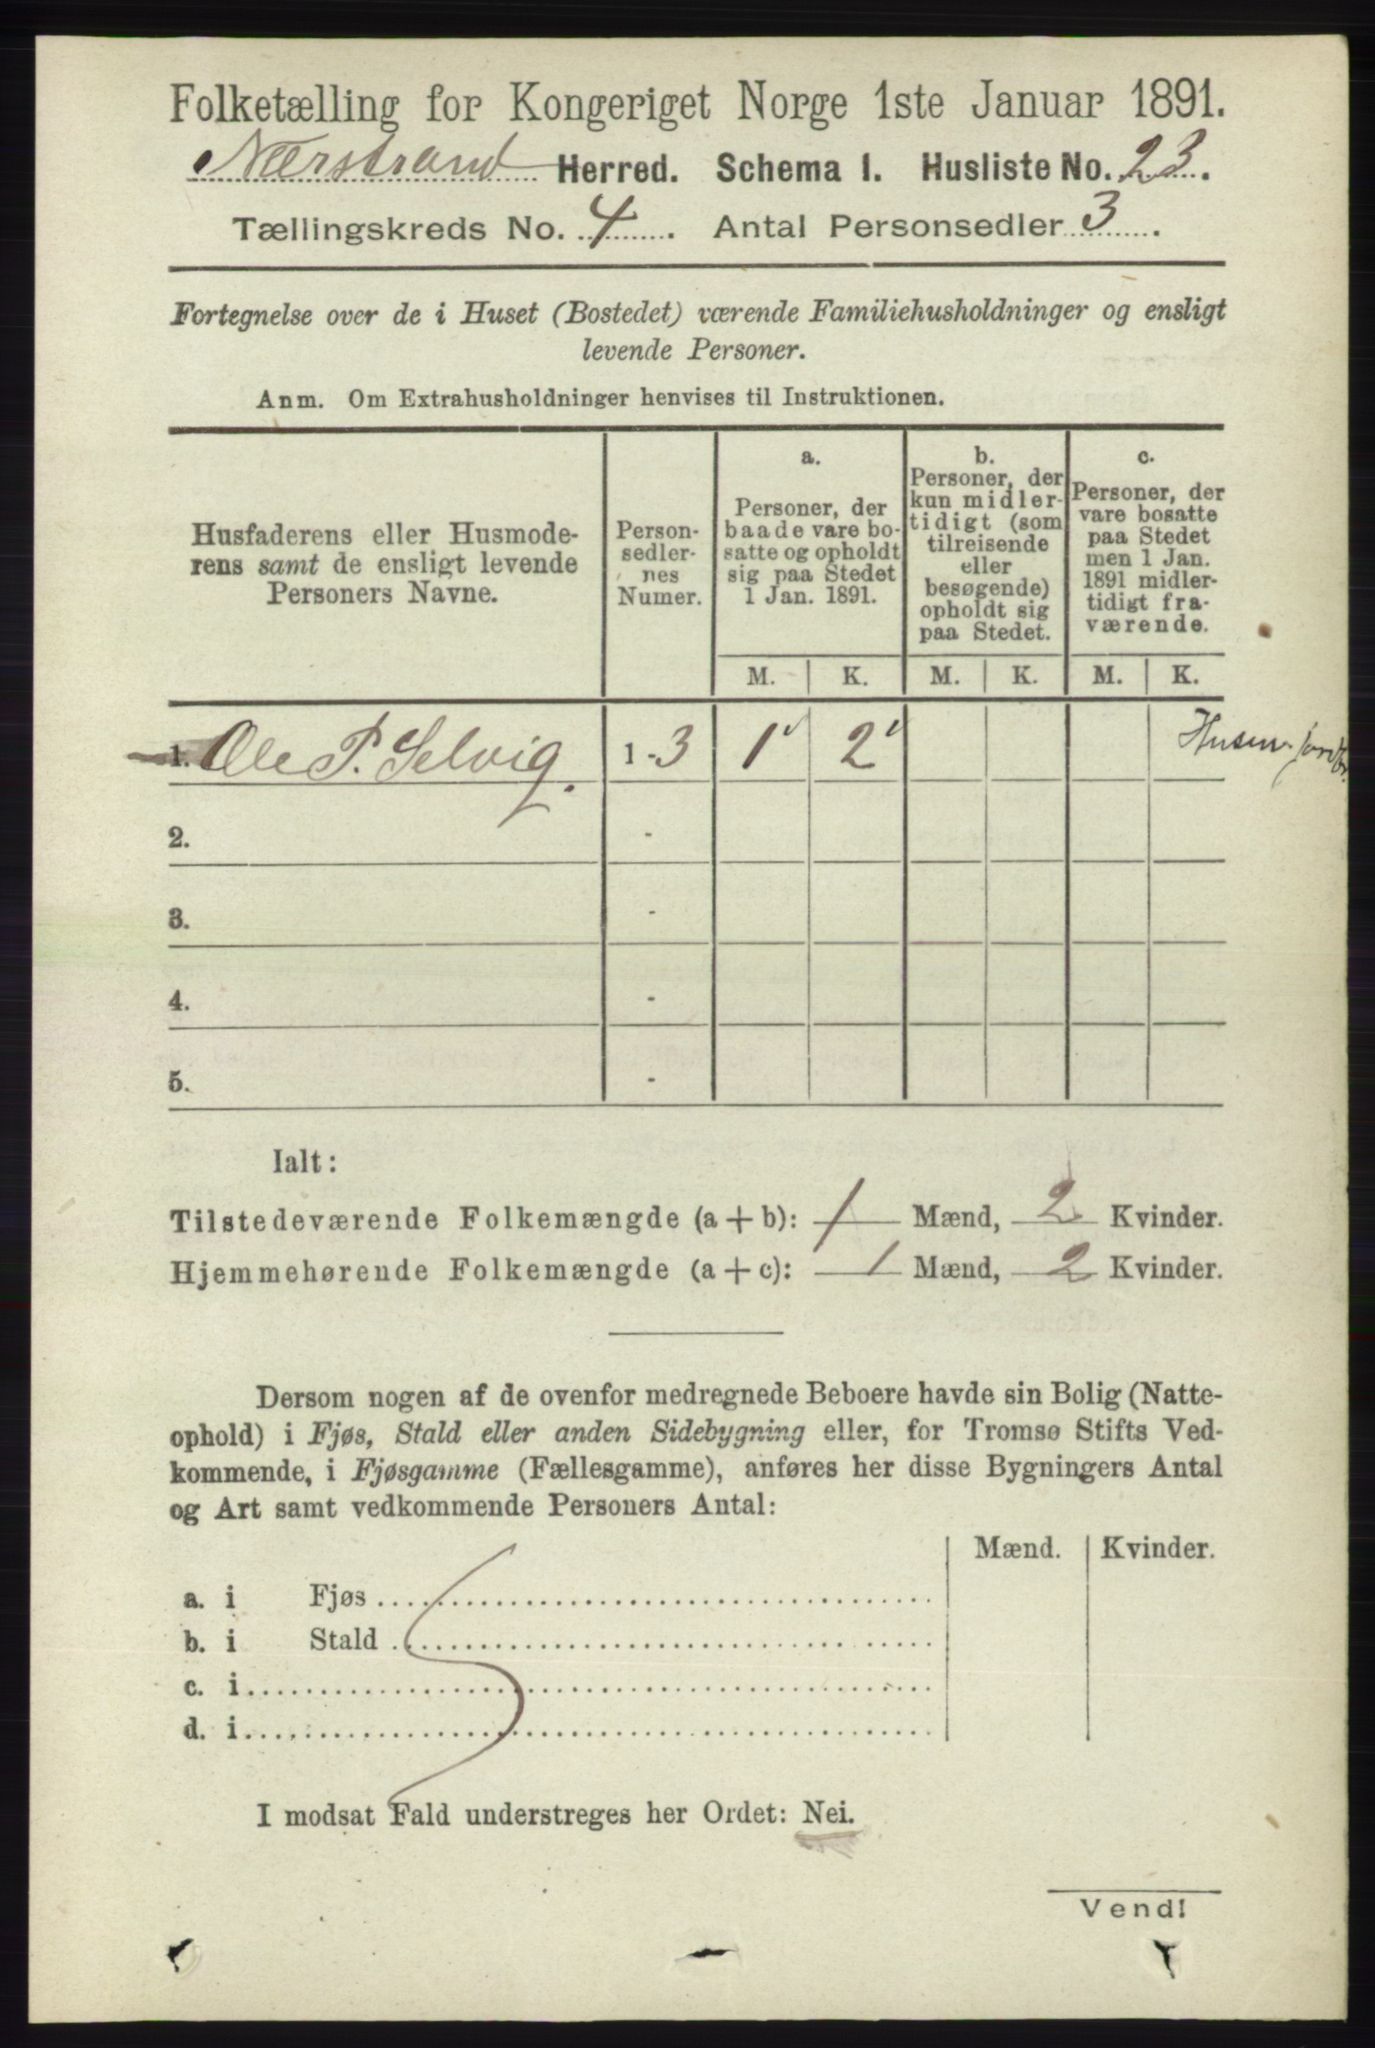 Folketælling for Kongeriget Norge 1ste Januar 1891.
Nærstrand Herred. Schema 1. Husliste No. 23.
Tællingskreds No. 4. Antal Personsedler 3.
Fortegnelse over de i Huset (Bostedet) værende Familiehusholdninger og ensligt
levende Personer.
Anm. Om Extrahusholdninger henvises til Instruktionen.
Husfaderens eller Husmode-
rens samt de ensligt levende
Personers Navne.
Person-
sedler-
nes
Numer.
a.
Personer, der
baade vare bo-
satte og opholdt
sig paa Stedet
1 Jan. 1891.
b.
Personer, der
kun midler-
tidigt (som
tilreisende
eller
besøgende)
opholdt sig
paa Stedet.
c.
Personer, der
vare bosatte
paa Stedet
men 1 Jan.
1891 midler-
tidigt fra-
værende.
M. K. M. K. M. K.
1. Ole P. Selvig. 1-3 1 2
2. -
3. -
4. -
5. -
Ialt:
Tilstedeværende Folkemængde (a+b): 1 Mænd, 2 Kvinder.
Hjemmehørende Folkemængde (a+c): 1 Mænd, 2 Kvinder.
Dersom nogen af de ovenfor medregnede Beboere havde sin Bolig (Natte-
ophold) i Fjøs, Stald eller anden Sidebygning eller, for Tromsø Stifts Ved-
kommende, i Fjøsgamme (Fællesgamme), anføres her disse Bygningers Antal
og Art samt vedkommende Personers Antal:
Mænd. Kvinder.
a. i Fjøs
b. i Stald
c. i
d. i
I modsat Fald understreges her Ordet: Nei.
Vend!